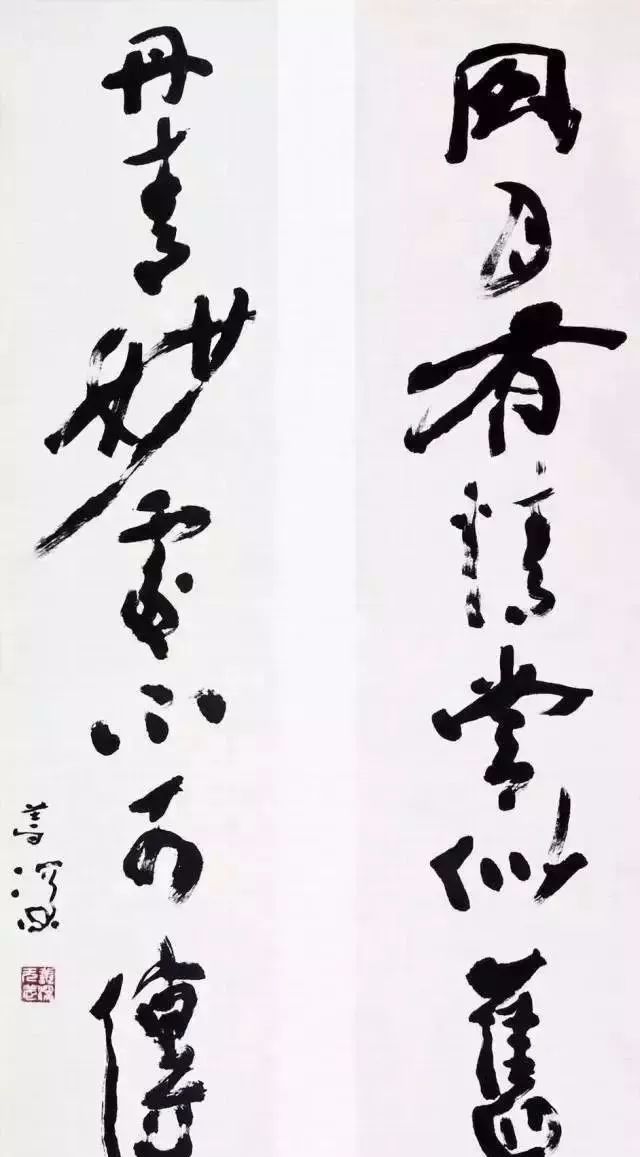 風月有情常似舊
丹青妙處不可傳
善深